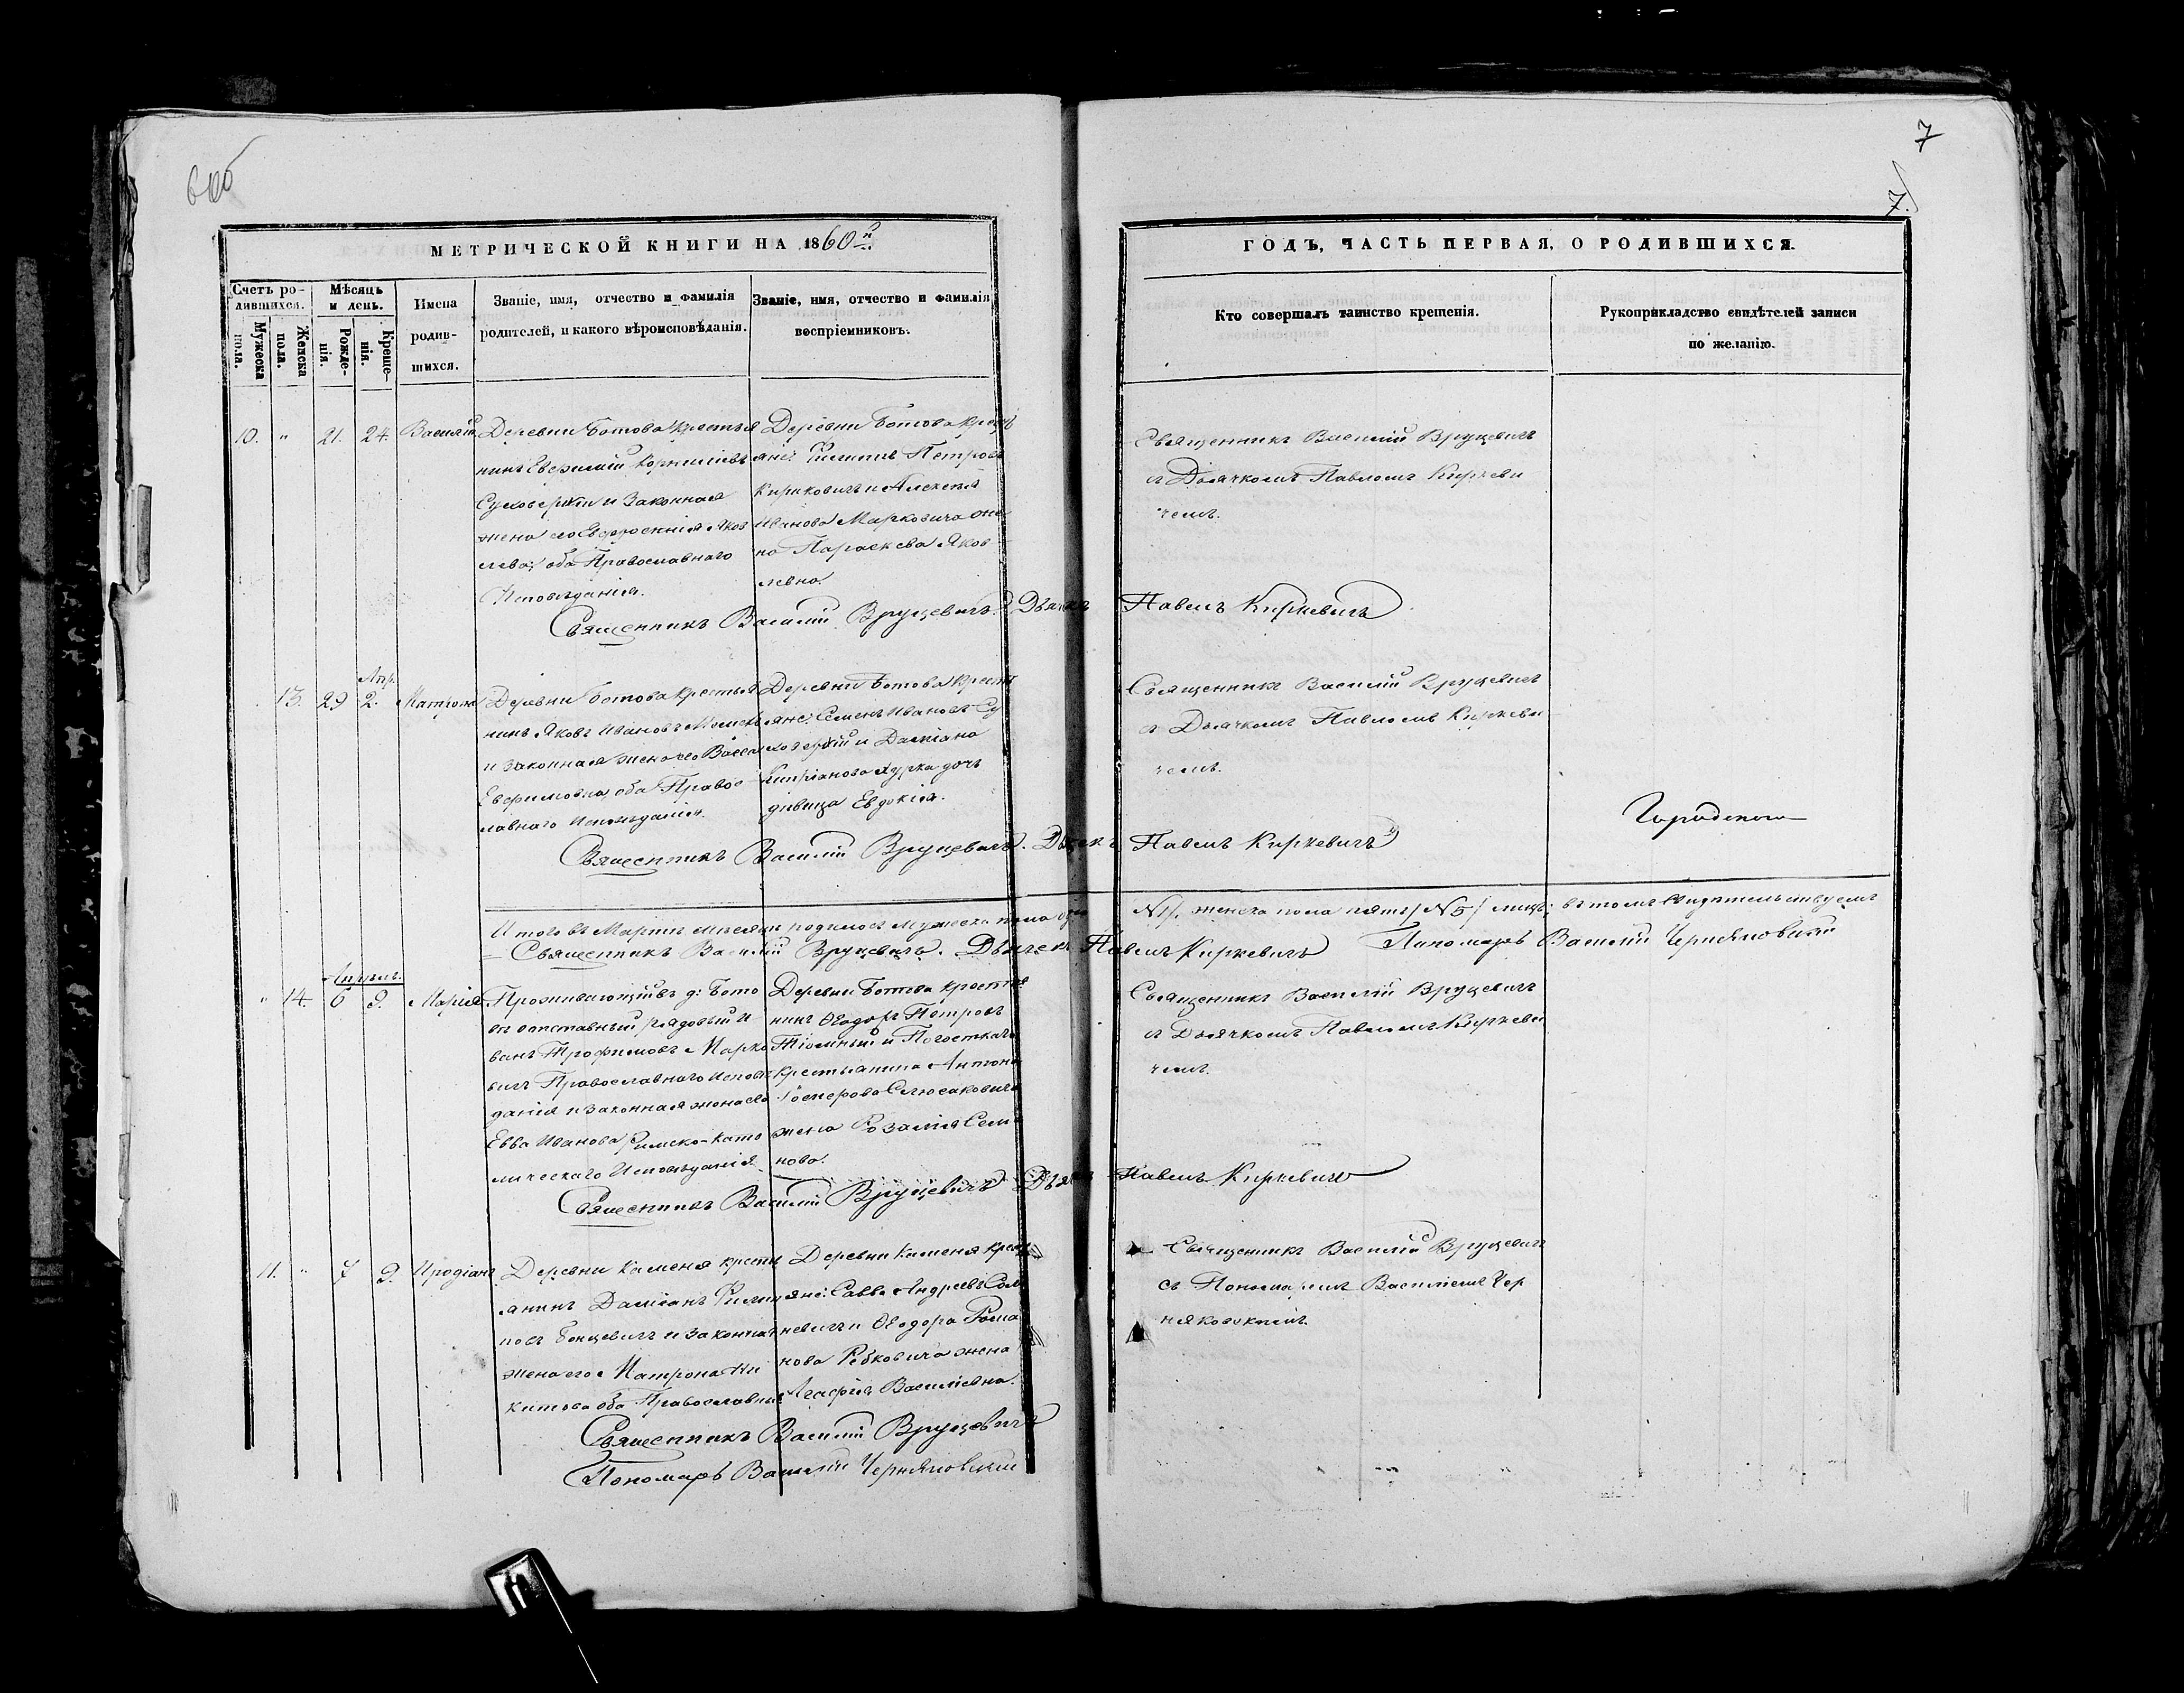 6 об
7
7.
МЕТРИЧЕСКОЙ КНИГИ НА 1860й
ГОДЪ, ЧАСТЬ ПЕРВАЯ, О РОДИВШИХСЯ.
Счетъ ро-
дившихся.
Мужеска
пола.
Женска
пола.
Мѣсяцъ
и день.
Рожде-
нія.
Креще-
нія.
Имена
родив-
шихся.
Званіе, имя, отчество и фамилія
родителей, и какого вѣроисповѣданія.
Званіе, имя, отчество и фамилія
воспріемниковъ.
Кто совершалъ таинство крещенія.
Рукоприкладство свидѣтелей записи
по желанію.
10. " 21. 24. Василій
Деревни Ботова крестья
нинъ Евфимій Корниліевъ
и Законная
жена его Евфросинія Яков
лева, оба Православнаго
Исповѣданія.
Деревни Ботова крест
яне: Филиппъ Петровъ
Кириковичъ и Алексѣя
Иванова Марковича же
на Параскева Яков
левна.
Священникъ Василій Вруцевичъ
съ Дьячкомъ Павломъ Киркеви
чемъ.
Священникъ Василій Вруцевичъ. Дьячекъ Павелъ Киркевичъ
Апр.
13. 29 2. Матрона
Деревни Ботова крестья
нинъ Яковъ Ивановъ
и законная жена его Васса
Евфимовна, оба Правос
лавнаго Исповѣданія.
Деревни Ботова крест
яне: Семенъ Ивановъ Су
и Даміана
Кипріанова дочь
дѣвица Евдокія.
Священникъ Василій Вруцевичъ
съ Дьячкомъ Павломъ Киркеви
чемъ.
Священникъ Василій Вруцевичъ. Дьячекъ Павелъ Киркевичъ
Итого въ Мартѣ мѣсяцѣ родилось мужеска пола одно №1/, женска пола пять/№5/ лицъ; въ томъ свидѣтельствуемъ
Священникъ Василій Вруцевичъ. Дьячекъ Павелъ Киркевичъ Пономарь Василій Черняковскій
Апрѣль.
" 14. 6 9. Марія
Проживающій въ д: Бото
вѣ отставный рядовый И
ванъ Трофимовъ Марко
вичъ Православнаго Исповѣ
данія и законная жена его
Евва Иванова Римско-като
лическаго Исповѣданія
Деревни Ботова крестья
нинъ Ѳеодоръ Петровъ
и
крестьянина Антона
жена Розалія Семе
нова.
Священникъ Василій Вруцевичъ
съ Дьячкомъ Павломъ Киркеви
чемъ.
Священникъ Василій Вруцевичъ Дьячекъ Павелъ Киркевичъ
11. " 7 9. Иродіонъ
Деревни Каменя кресть
янинъ Даміанъ Филип
повъ Бонцевичъ и законная
жена его Матрона Ни
китова оба Православные
Деревни Каменя крест
яне: Савва Андреевъ
и Ѳеодора Рома
нова Рабковича жена
Агафія Василіевна.
Священникъ Василій Вруцевичъ
съ Пономаремъ Василіемъ Чер
няковскимъ.
Священникъ Василій Вруцевичъ
Пономарь Василій Черняковскій